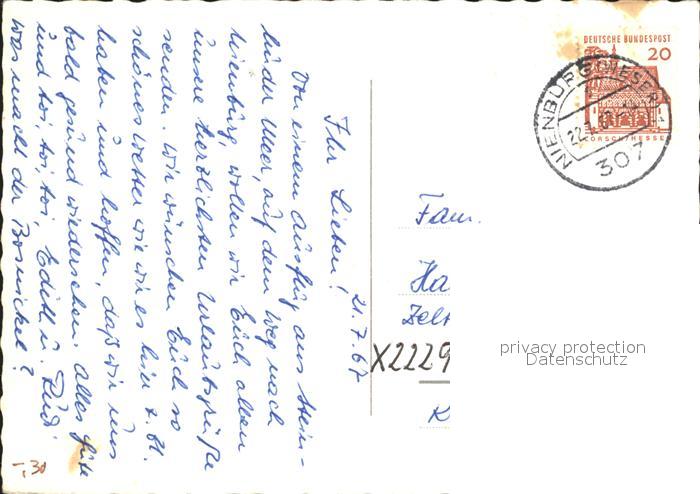 21.7.67
Ihr Lieben!
Von einem Ausflug aus Stein-
huder Meer, auf dem Weg nach
Nienburg, wollen wir Euch allen
unsere herzlichsten Urlaubsgrüße
senden. Wir wünschen Euch so
schönes Wetter wie wir es hier z. Zt.
haben und hoffen, daß wir uns
bald gesund wiedersehen. Alles Gute
und toi, toi, toi, Edith u. Rudi
was macht der
-,30
DEUTSCHE BUNDESPOST
20
LORSCH/HESSEN
NIENBURG (WESER)
307
Fam.
Ha
Zelt
X2229
K
privacy protection
Datenschutz